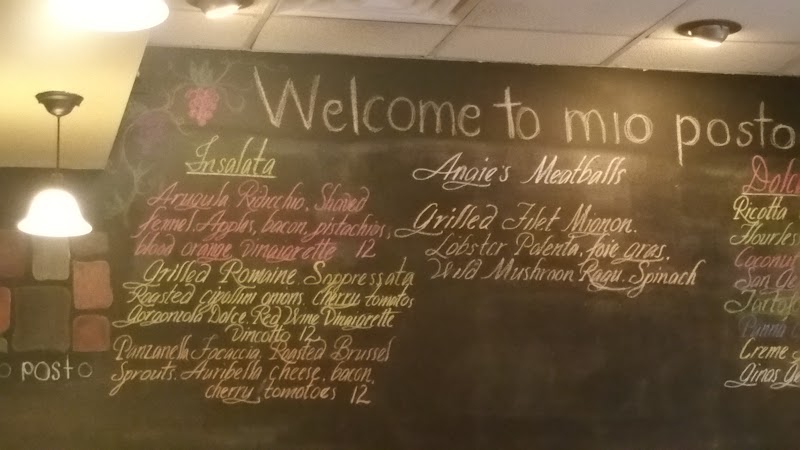 Welcome to mio posto
Insalata
Arugula Radicchio. Shaved
fennel. Apples, bacon, pistachios,
blood orange Vinaigrette 12
Grilled Romaine. Soppressata
Roasted cipollini onions. cherry tomatos
Gorgonzola Dolce. Red Wine Vinaigrette
Vincotto 12
Panzanella Focaccia, Roasted Brussel
Sprouts. Auribella cheese, bacon,
cherry tomatoes 12
Angie's Meatballs
Grilled Filet Mignon.
Lobster Polenta. foie gras.
Wild Mushroon Ragu. Spinach
Dolc
Ricotta
Flourles
Coconut
San Ge
Tartuf
Panna C
Creme
Ginas G
o posto